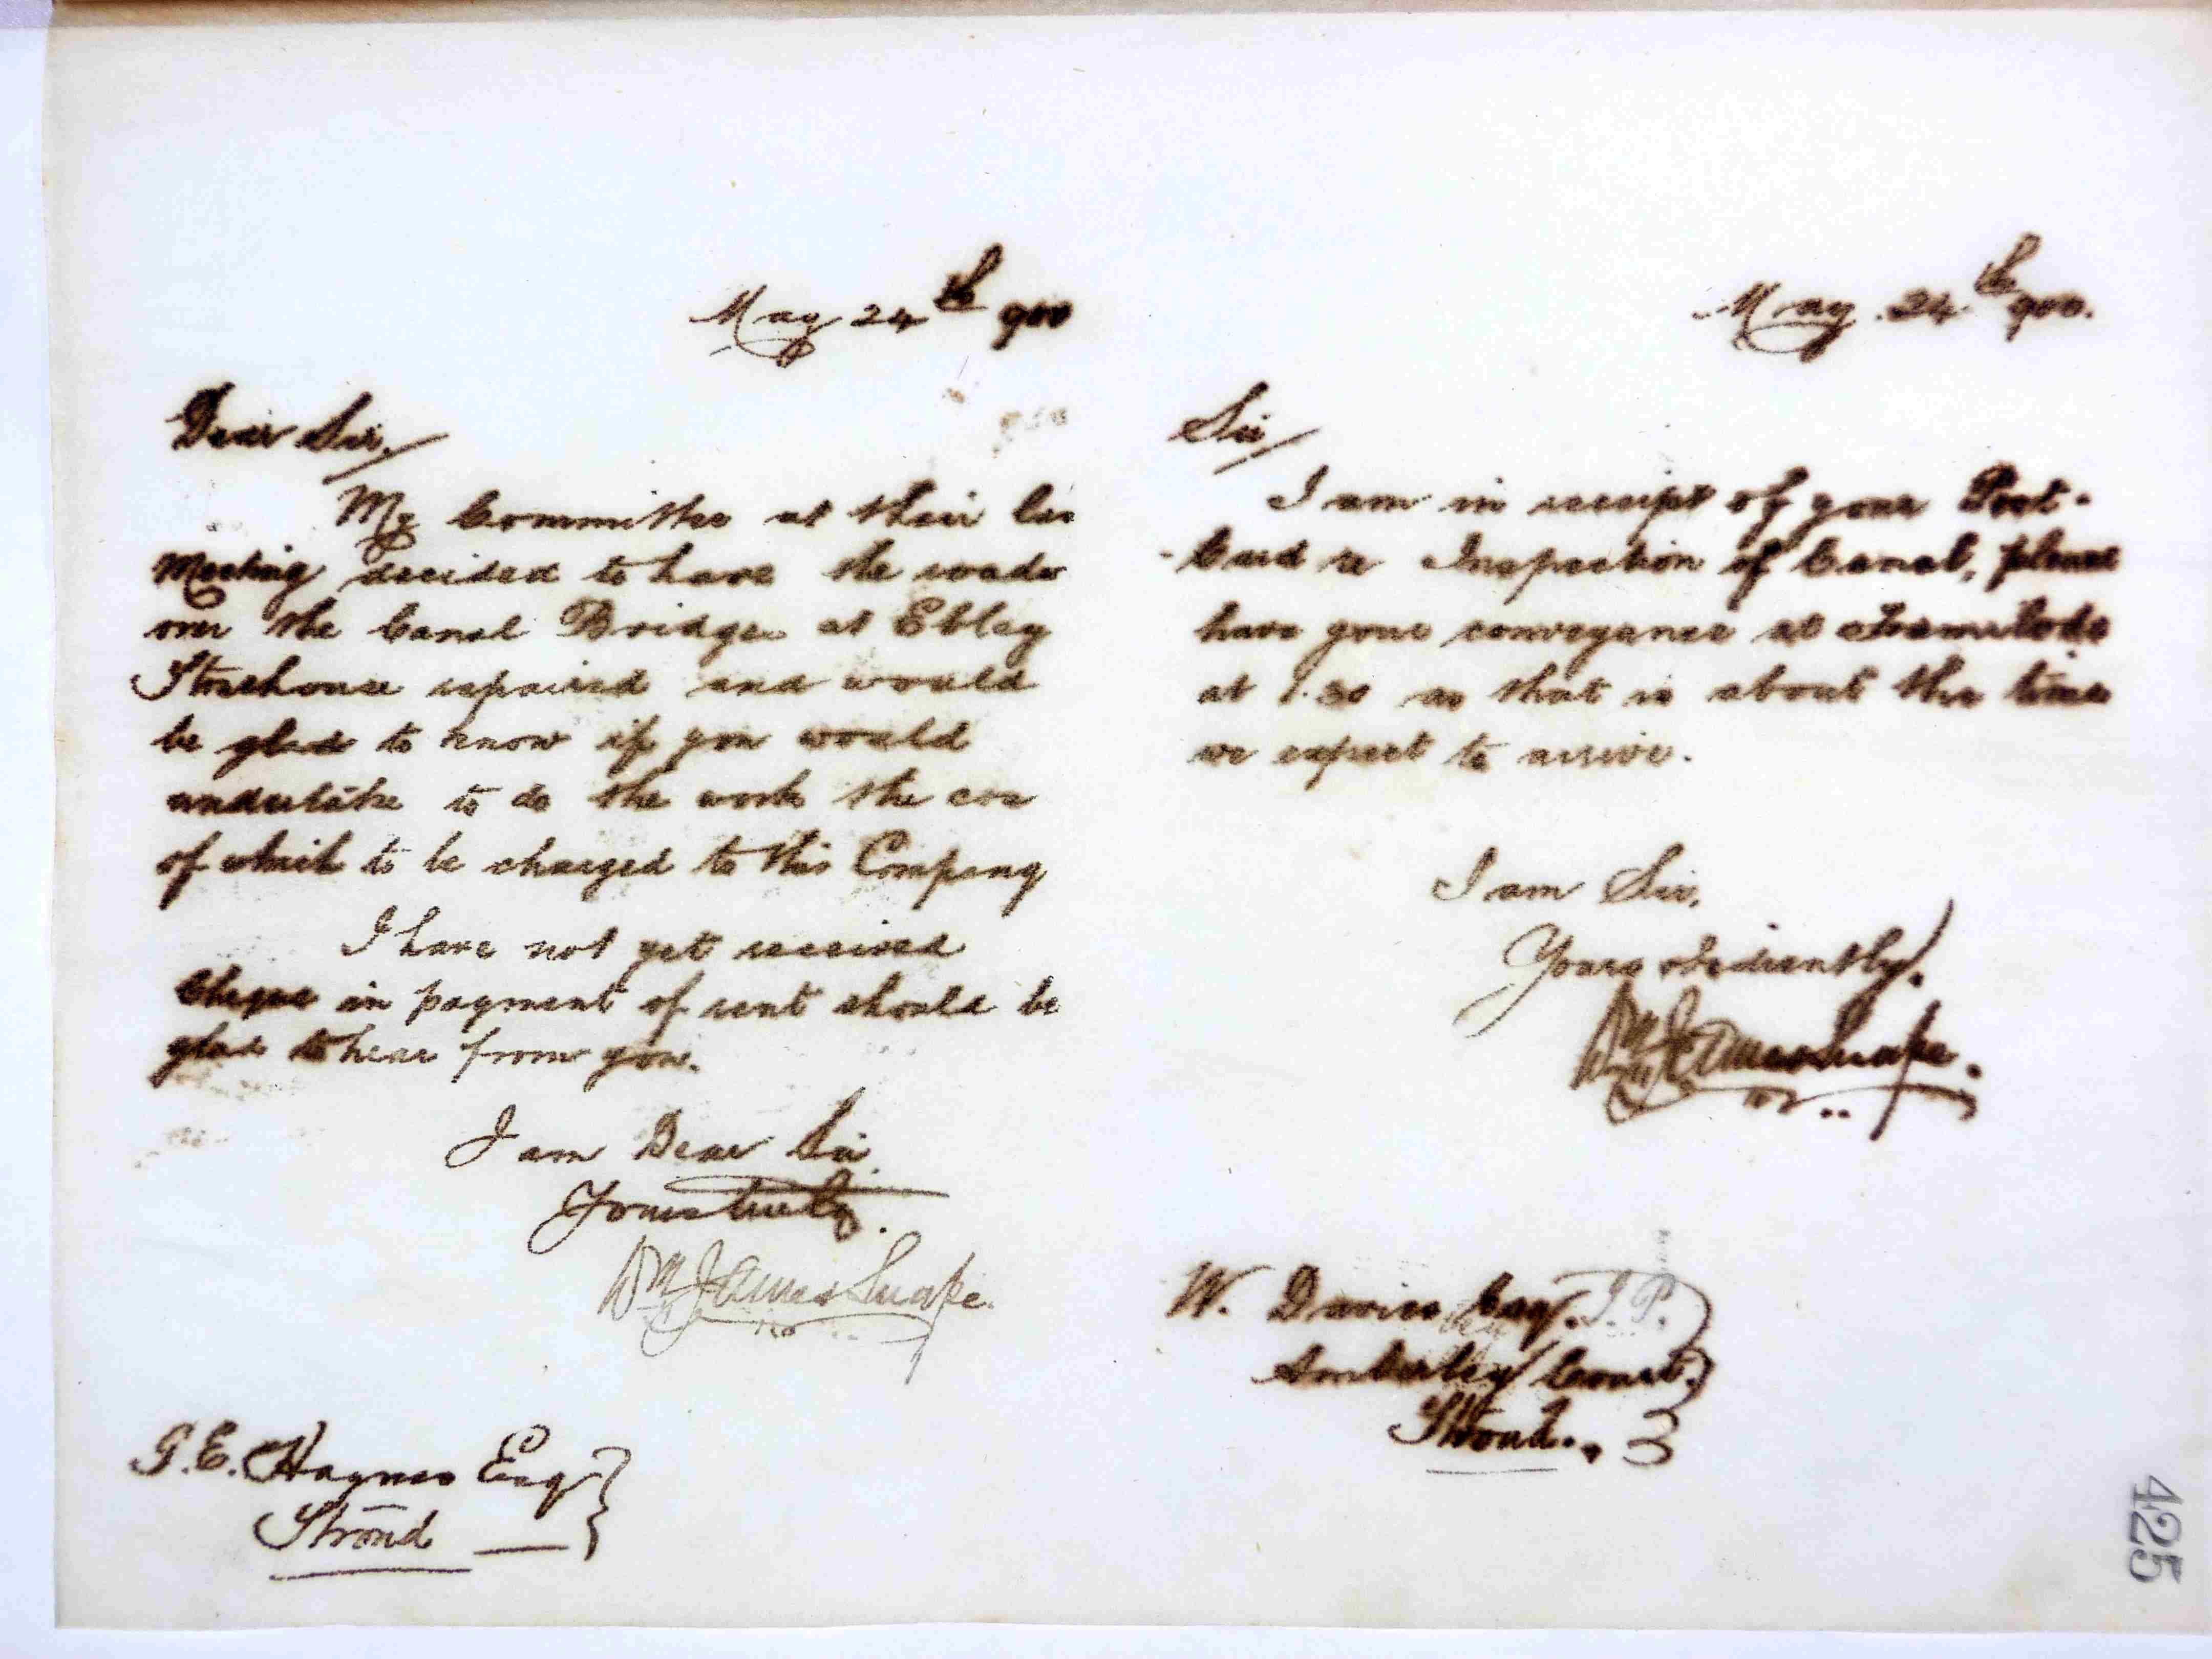 May 24th 900
Dear Sir,
My Committee at their las
Meeting decided to have the roadw
over the Canal Bridge at Ebley
Stonehouse repaired and would
be glad to know if you would
undertake to do the work the cos
of which to be charged to this Company
I have not yet received
Cheque in payment of rent should be
glad to hear from you.
I am Dear Sir
Yours truly.
Wm James Snape.
G. E. Haynes Esq
Stroud
May. 24th 900.
Sir/
I am in receipt of your Post-
-Card re Inspection of Canal, please
have your conveyance at Framilode
at 1.30 as that is about the time
we expect to arrive.
I am Sir,
Yours obediently.
Wm James Snape.
W. Davies Esq. J. P.
Amberley Court.
Stroud.
425